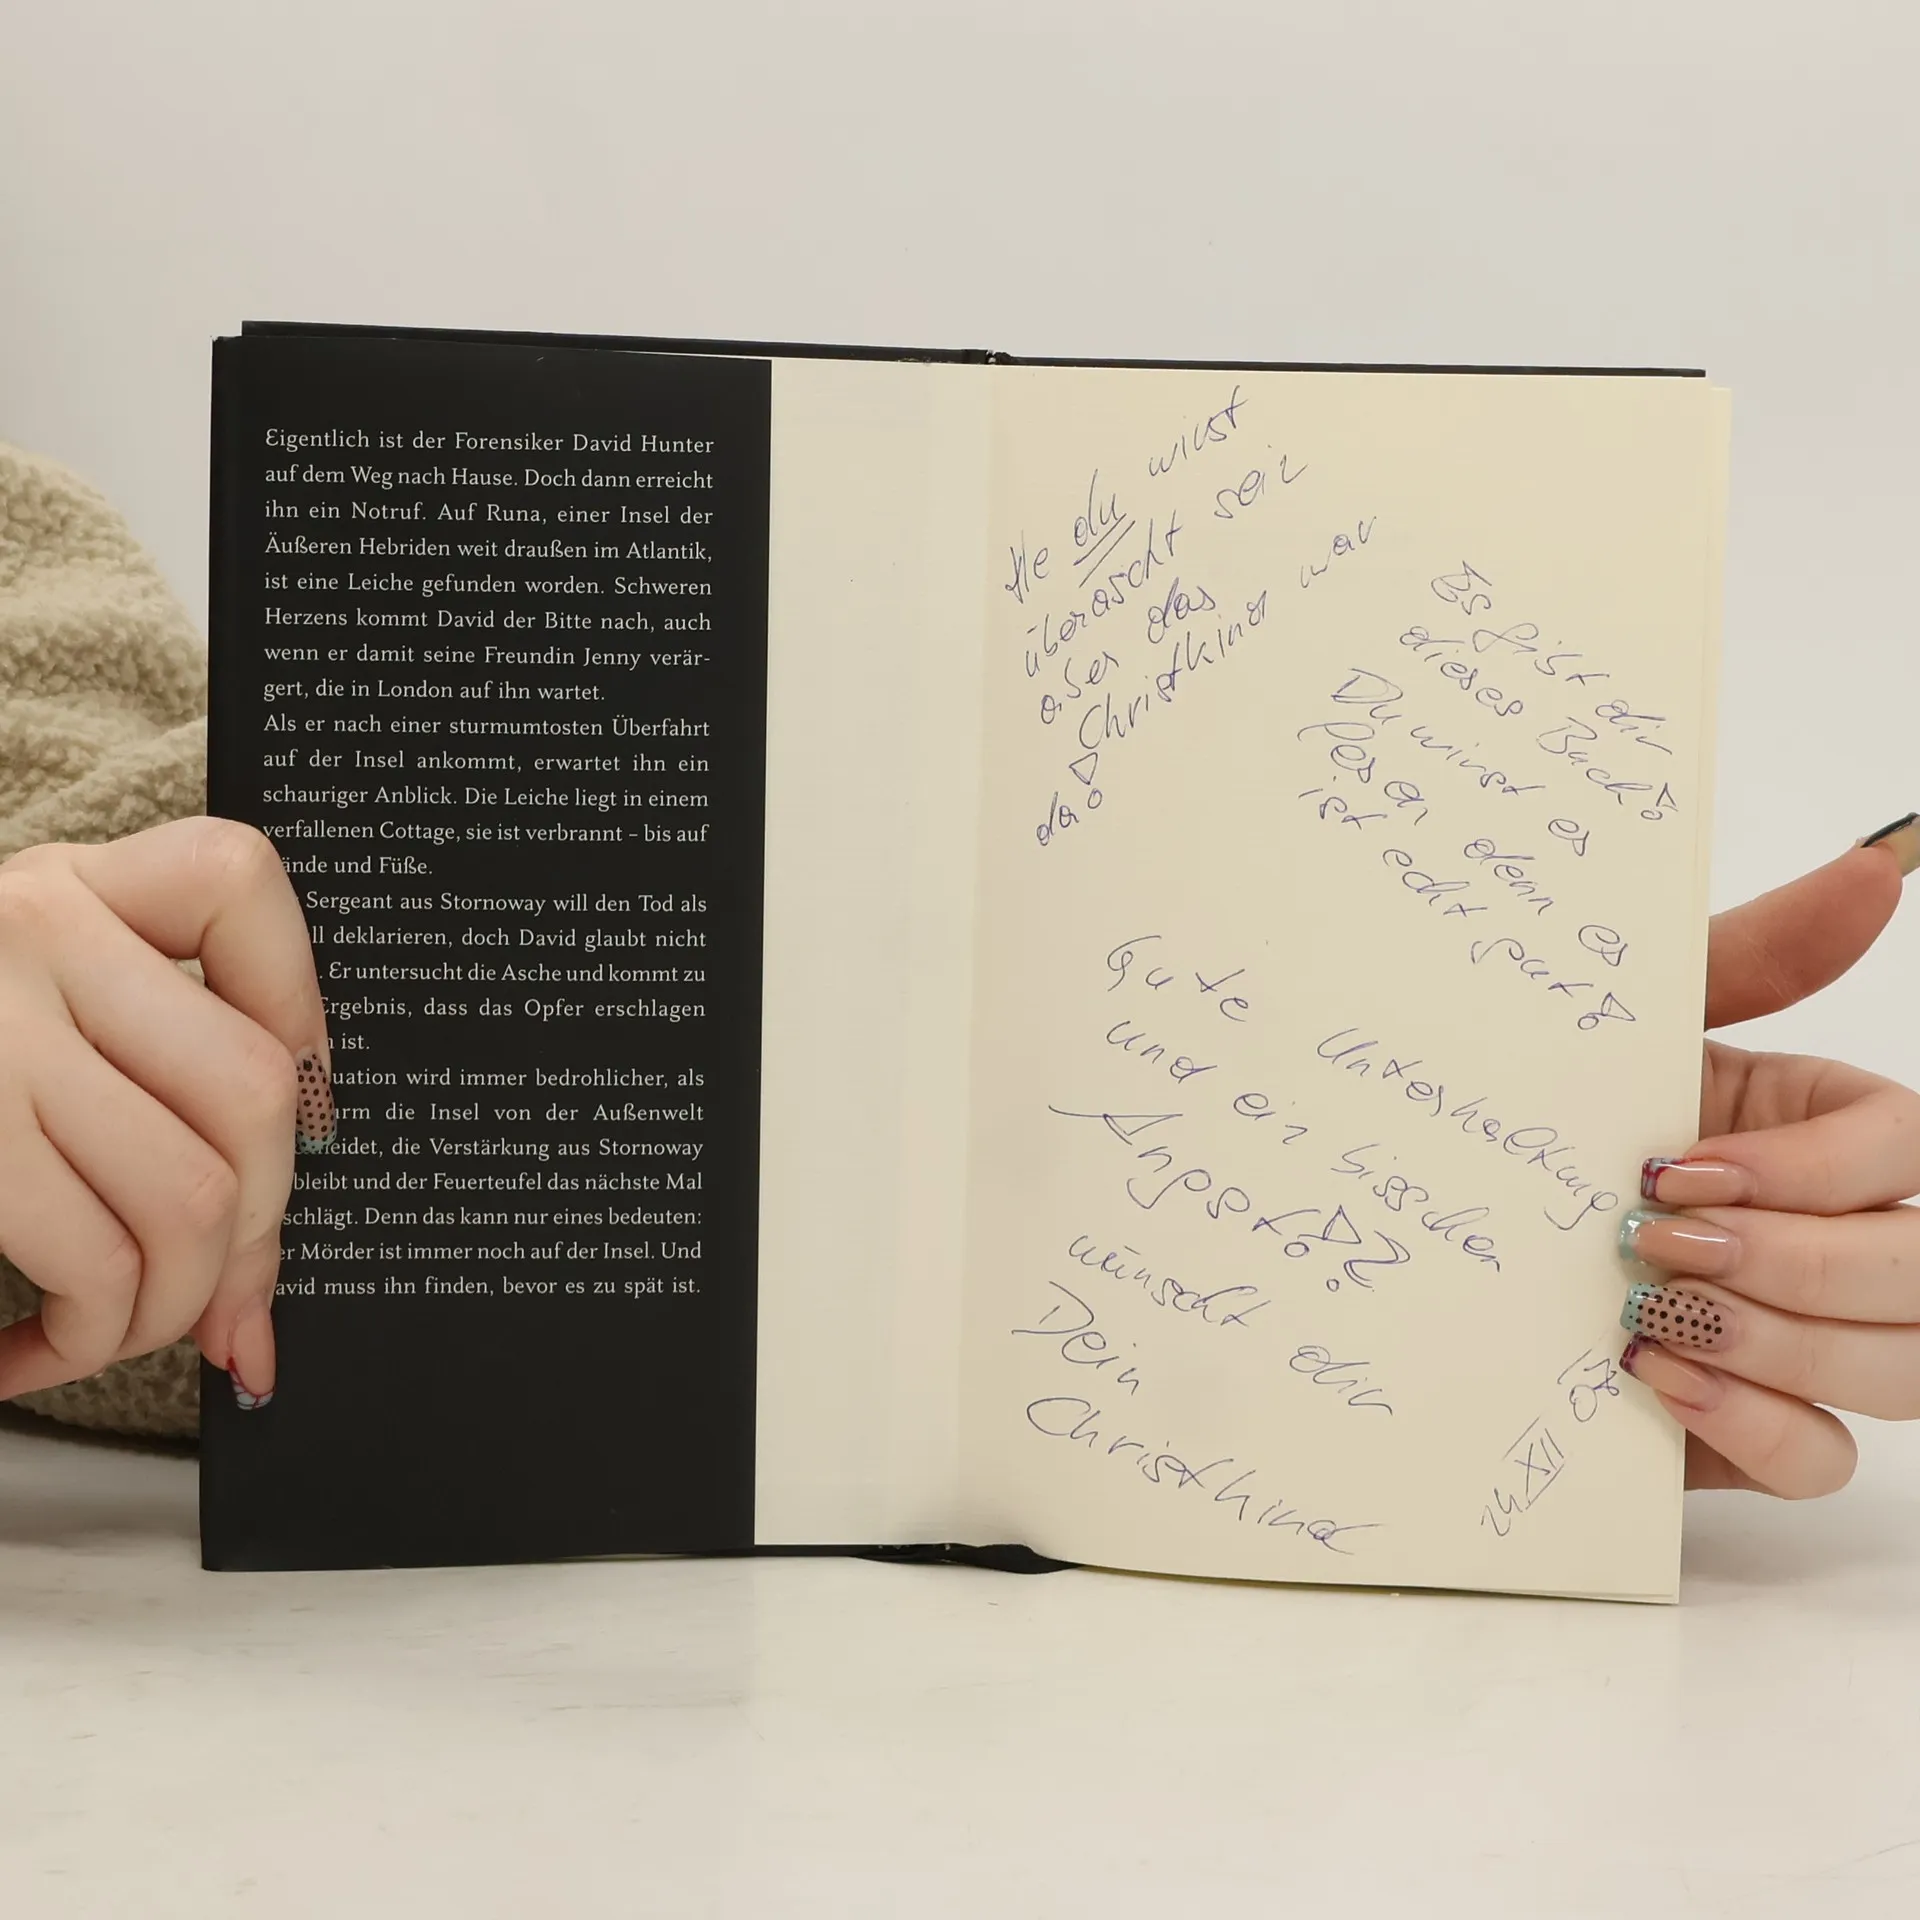 Eigentlich ist der Forensiker David Hunter
auf dem Weg nach Hause. Doch dann erreicht
ihn ein Notruf. Auf Runa, einer Insel der
Äußeren Hebriden weit draußen im Atlantik,
ist eine Leiche gefunden worden. Schweren
Herzens kommt David der Bitte nach, auch
wenn er damit seine Freundin Jenny verär-
gert, die in London auf ihn wartet.
Als er nach einer sturmumtosten Überfahrt
auf der Insel ankommt, erwartet ihn ein
schauriger Anblick. Die Leiche liegt in einem
verfallenen Cottage, sie ist verbrannt – bis auf
ände und Füße.
Sergeant aus Stornoway will den Tod als
ll deklarieren, doch David glaubt nicht
. Er untersucht die Asche und kommt zu
Ergebnis, dass das Opfer erschlagen
ist.
uation wird immer bedrohlicher, als
urm die Insel von der Außenwelt
neidet, die Verstärkung aus Stornoway
bleibt und der Feuerteufel das nächste Mal
schlägt. Denn das kann nur eines bedeuten:
er Mörder ist immer noch auf der Insel. Und
avid muss ihn finden, bevor es zu spät ist.
He du wirst
überascht sein
aber das
Christkind war
da!
Es gibt dir
dieses Buch!
Du wirst es
lesen denn es
ist echt gut!
Gute Unterhaltung
und ein bisschen
Angst!?
wünscht dir
Dein
Christkind
24 XII